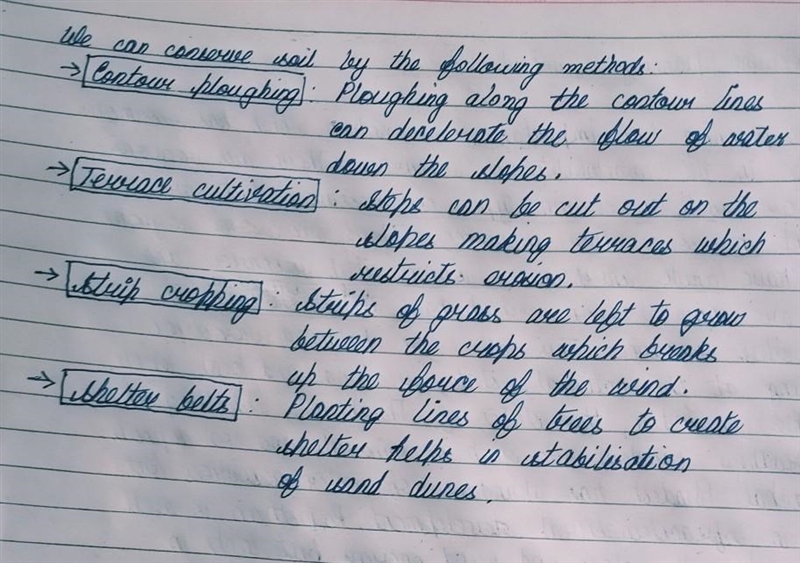 We can conserve soil by the following methods:
→ Contour ploughing : Ploughing along the contour lines
can decelerate the flow of water
down the slopes.
→ Terrace cultivation : Steps can be cut out on the
slopes making terraces which
restricts erosion.
→ Strip cropping : Strips of grass are left to grow
between the crops which breaks
up the force of the wind.
→ Shelter belts : Planting lines of trees to create
shelter helps in stabilisation
of sand dunes.